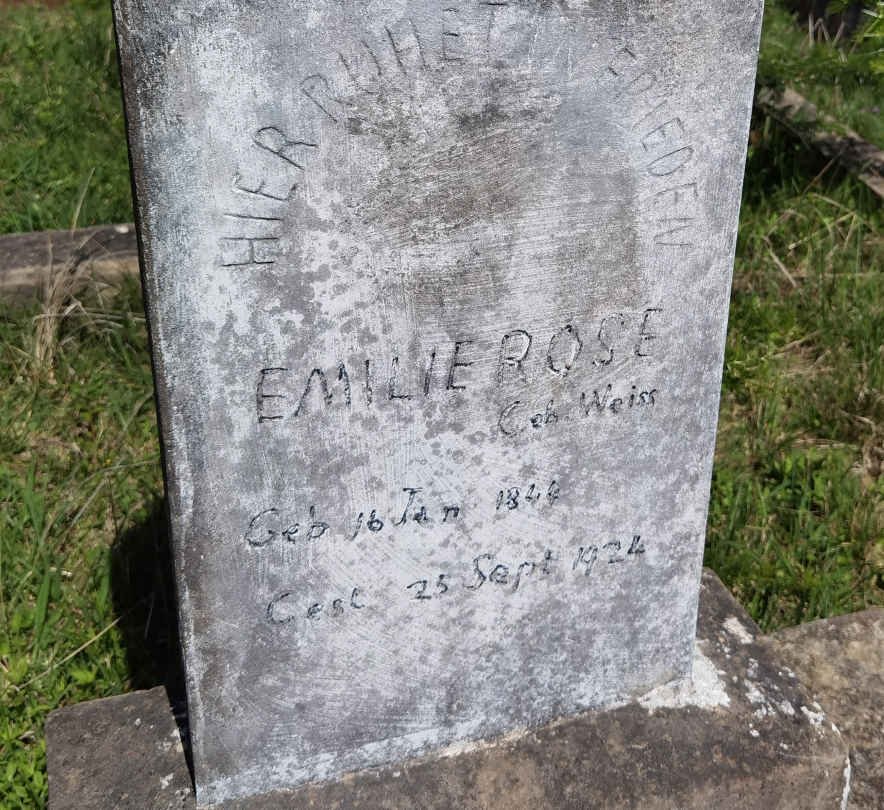 HIER RUHET IN FRIEDEN
EMILIE ROSE
Geb. Weiss
Geb 16 Jan 1844
Gest 25 Sept 1924